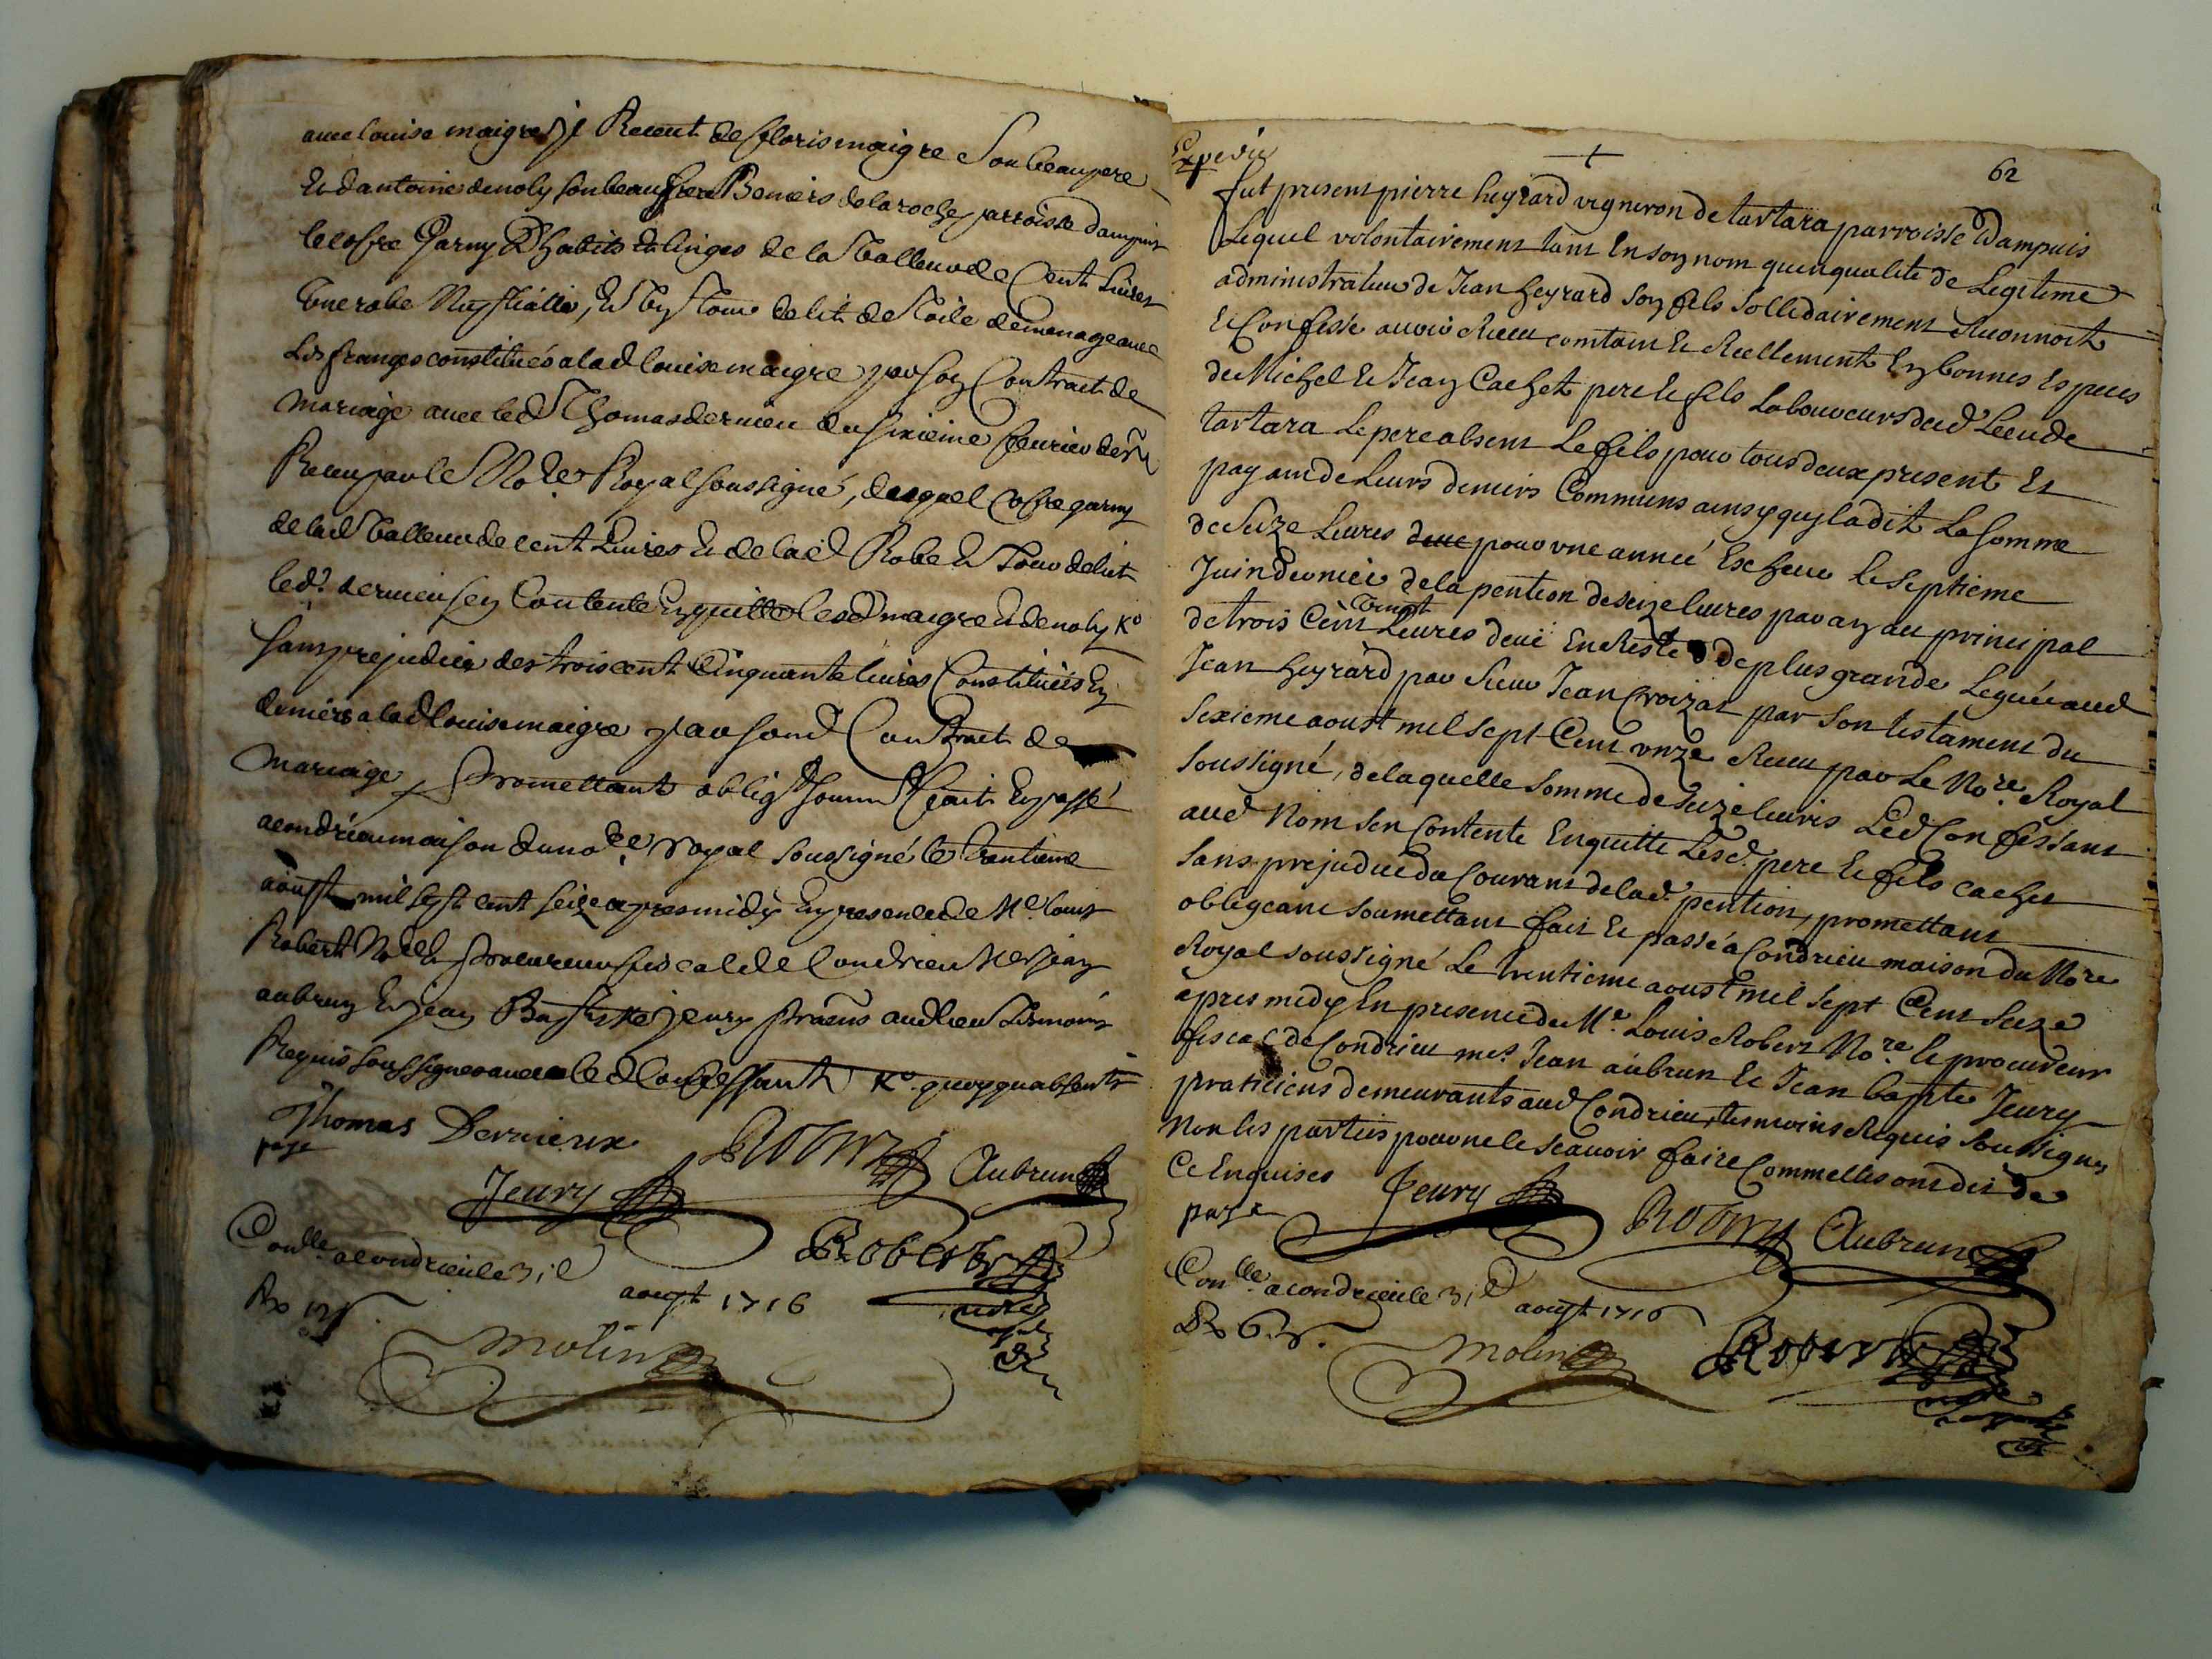 avec louise maigre Receut de floris maigre son beaupere
Et dantoine denoly son beaufrere Beniers delaroche parroisse dampuis
le cofre Garny Dhabits & linges de la Valleur de Cent Livres
Une robe Nuptialle, Et Tour de lit de Toile de menage avec
Les franges constituès alad louise maigre par son Contract de
Mariage avec led Thomas dernieu du sixieme feurier der
Receu par le No.re Royal soussigné, duquel Cofre garny
de lad Valleur de cent Livres & de lad Robe & Tour de lit
led. dernieu sen Contente Enquitte lesd maigre & denoly Ko
sans prejudice des trois cent Cinquante livres Constituées En
deniers alad louise maigre par sond Contract de
Mariage Promettant oblig soum fait Et passé
acondrieu maison duno.re royal soussigné le Trentieme
aoust mil sept cent seize apres midy En presence de Me. louis
Robert No.re & Procureur fiscal de Condrieu Mes jean
aubrun Et jean Baptiste jeury Praens audlieu Tesmoins
Requis soussignes avec led Confessant Ko. quoyquabsents
Thomas Dernieux
paye
Jeury Robert Aubrun
Conlle acondrieu le 31e aoust 1716 Robert
Rx 12s.
molin
Expedié
62
fut present pierre heyrard vigneron de tartara parroisse Dampuis
Lequel volontairement tant En son nom quen qualité de Legitime
administrateur de Jean heyrard son fils sollidairement Reconnoit
Et Confesse avoir Receu comtant Et Reellement En bonnes Especes
de Michel Et Jean Cachet pere Et fils Laboureurs dud Lieu de
tartara Le pere absent Le fils pour tous deux present Et
payant de Leurs deniers Communs ainsy quil a dit La somme
de Seize Livres deue pour une année Escheue le septieme
Juin dernier de la pention de seize livres par an au principal
de trois Cent Vingt Livres deue En Reste de plus grande Leguée aud
Jean heyrard par sieur Jean Croizat par son testament du
sixieme aoust mil sept Cent unze Receu par Le No.re Royal
soussigné, de laquelle somme de seize livres Led Confessant
aud Nom sen Contente Enquitte Lesd. pere Et fils cachet
sans prejudice du Courant de lad. pention, promettant
obligeant soumettant fait Et passé a Condrieu maison du No.re
Royal soussigné Le trentieme aoust mil sept Cent Seize
apres midy En presence de Me. Louis Robert No.re Et procureur
fiscal de Condrieu mes Jean aubrun Et Jean bapte Jeury
praticiens demeurants aud Condrieu, tesmoins Requis soussignes
Non les parties pour ne le scavoir faire Comme Elles ont dit de
Ce Enquises
paye
Jeury Robert Aubrun
Conlle. acondrieu le 31e aoust 1716
Rx 6s.
molin Robert